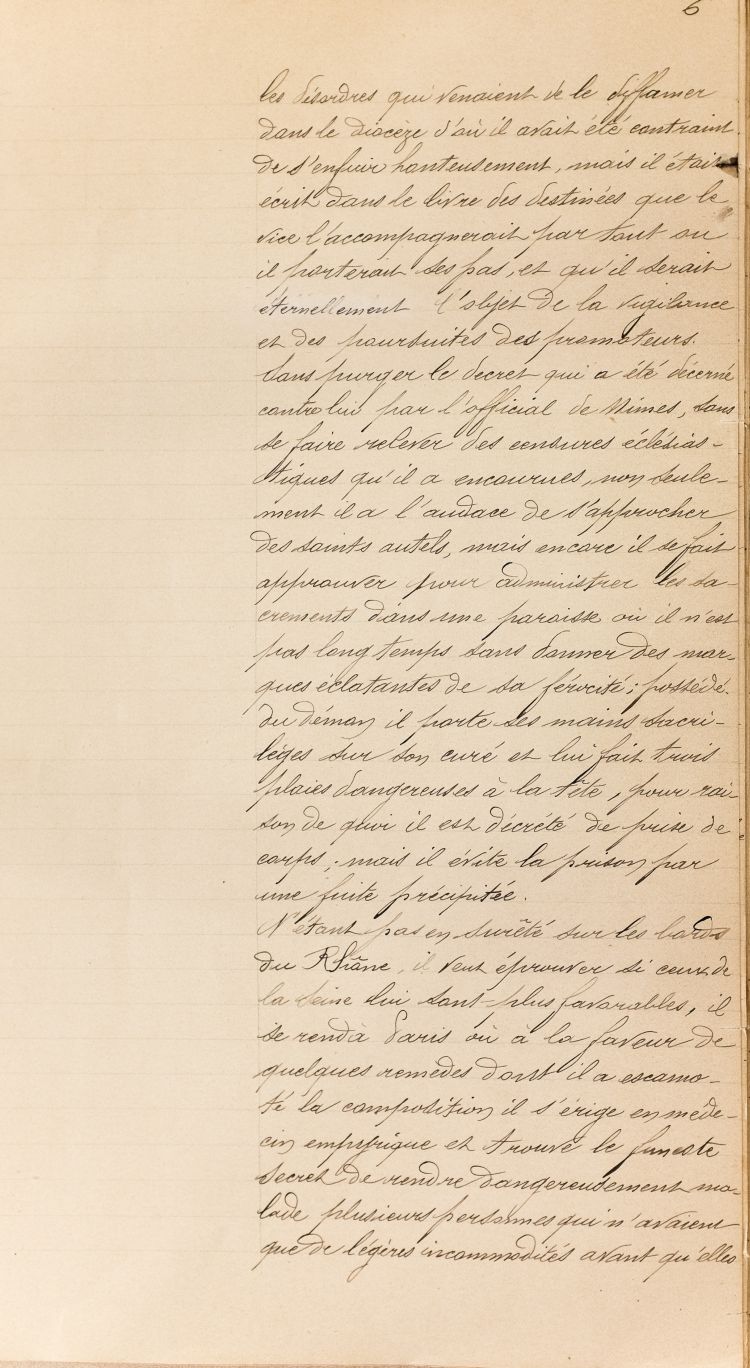 6
les désordres qui venaient de le diffamer
dans le diocèze d'où il avait été contraint
de s'enfuir honteusement, mais il était
écrit dans le livre des destinées que le
vice l'accompagnerait par tout ou
il porterait ses pas, et qu'il serait
éternellement l'objet de la vigilance
et des poursuites des promoteurs.
Sans purger le decret qui a été décerné
contre lui par l'official de Nimes, sans
se faire relever des censures éclésias-
tiques qu'il a encourues, non seule-
ment il a l'audace de s'approcher
des saints autels, mais encore il se fait
approuver pour administrer les sa-
crements dans une paroisse où il n'est
pas long temps sans donner des mar-
ques éclatantes de sa férocité; possédé
du démon il porte ses mains sacri-
lèges sur son curé et lui fait trois
plaies dangereuses à la tête, pour rai-
son de quoi il est décrété de prise de
corps; mais il évite la prison par
une fuite précipitée.
N'étant pas en surêté sur les bords
du Rhône, il veut éprouver si ceux de
la Seine lui sont plus favorables, il
se rend à Paris où à la faveur de
quelques remedes dont il a escamo-
té la composition il s'érige en méde-
cin empyrique et trouve le funeste
secret de rendre dangereusement ma-
lade plusieurs personnes qui n'avaient
que de légères incommodités avant qu'elles